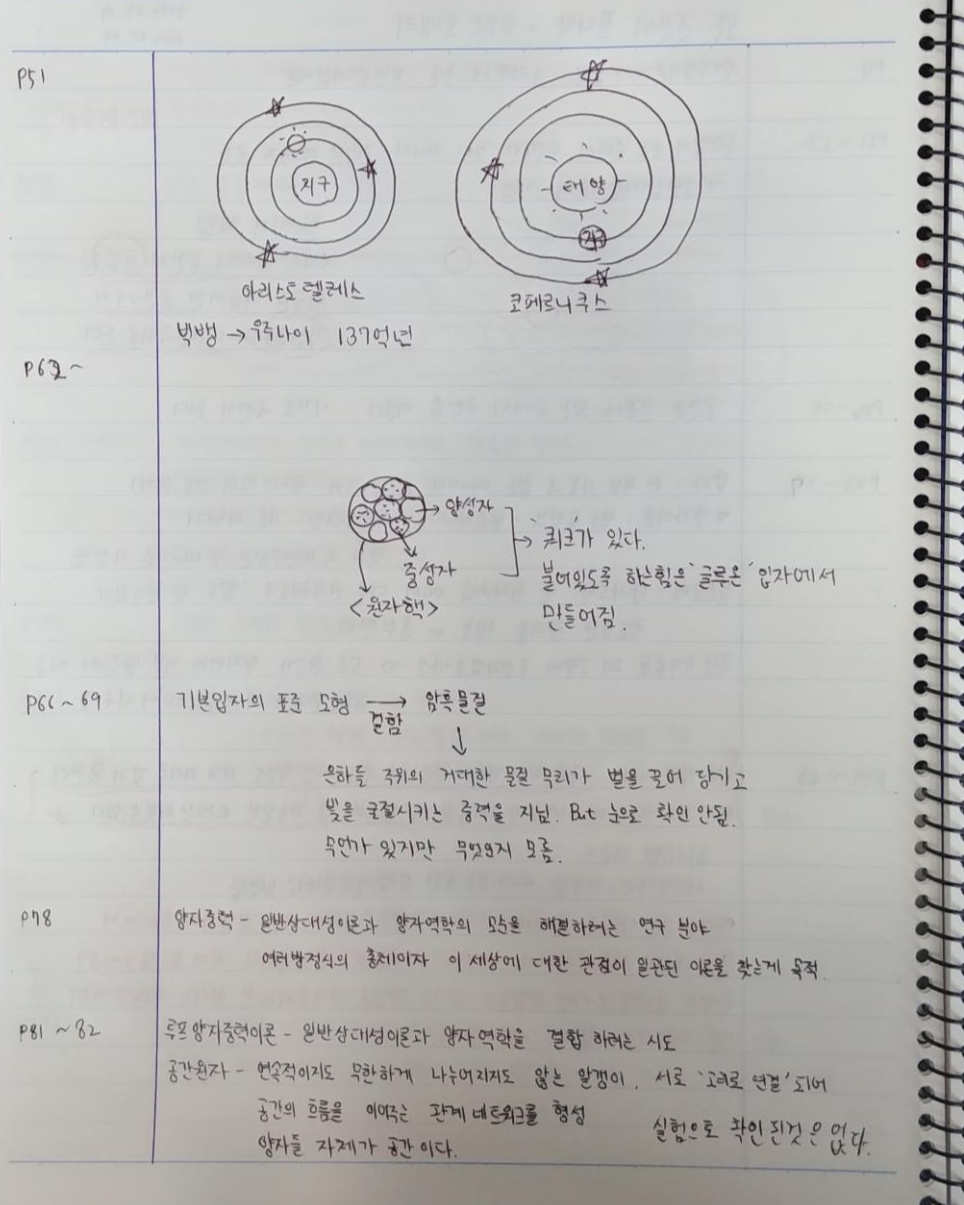 P51
지구
태양
지구
아리스토텔레스
코페르니쿠스
빅뱅 → 우주나이 137억년
P62~
→ 양성자
중성자
<원자핵>
→ 쿼크가 있다.
붙어있도록 하는힘은 '글루온' 입자에서
만들어짐.
P66~69 기본입자의 표준 모형 → 암흑물질
결함
은하들 주위의 거대한 물질 무리가 별을 끌어 당기고
빛을 굴절시키는 중력을 지님. But 눈으로 확인 안됨.
무언가 있지만 무엇인지 모름.
P78 양자중력 - 일반상대성이론과 양자역학의 모순을 해결하려는 연구 분야
여러방정식의 총체이자 이 세상에 대한 관점이 일관된 이론을 찾는게 목적.
P81 ~ 82 루프양자중력이론 - 일반상대성이론과 양자역학을 결합 하려는 시도
공간원자 - 연속적이지도 무한하게 나누어지지도 않는 알갱이. 서로 '고리로 연결' 되어
공간의 흐름을 이어주는 관계 네트워크를 형성
실험으로 확인된것은 없다.
양자들 자체가 공간이다.